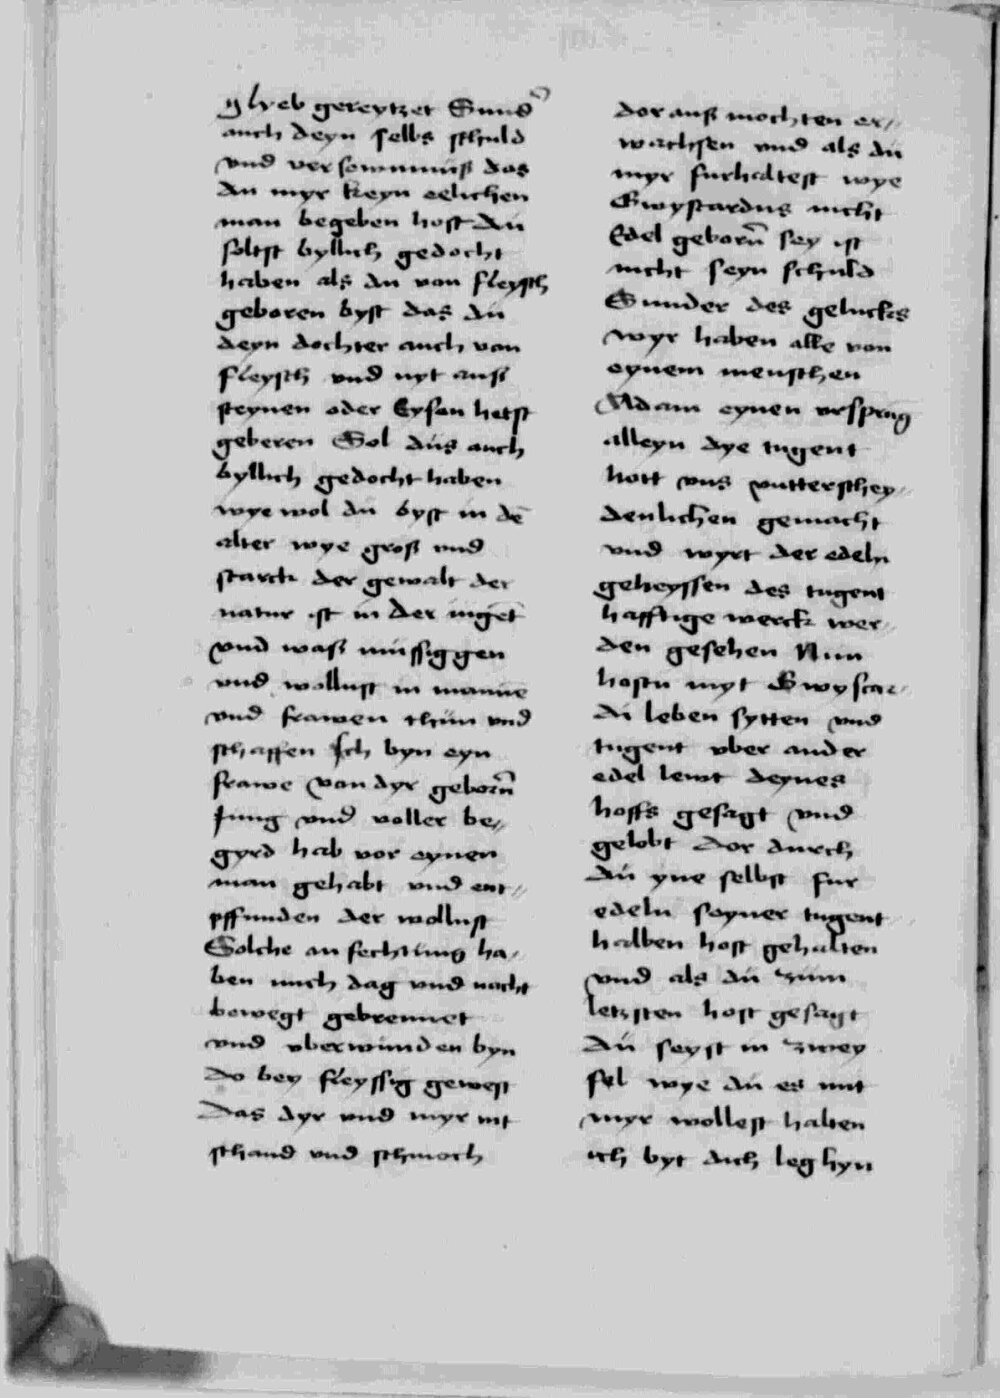 lyeb gereytzet Sunder̄
auch deyn selbs schuld
vnd versewmnuß das
du myr keyn eelichen
man begeben host Du
soltst byllich gedocht
haben als du von fleysch
geboren byst das du
deyn dochter auch von
fleysch vnd nyt auß
steynen oder Eysen hetst
geberen Sol dus auch
byllich gedocht haben
wye wol du byst in dē
alter wye groß vnd
starck der gewalt der
natur ist in der iugēt
vnd waß mussiggen
vnd wollust in mannē
vnd frawen thun vnd
schaffen Ich byn eyn
frawe von dyr geborn̄
Jung vnd voller be„
gyrd hab vor eynen
man gehabt vnd ent„
pffunden der wollust
Solche anfechtung ha„
ben mich dag vnd nacht
bewegt gebrennet
vnd vberwunden byn
do bey fleyssig gewest
Das dyr vnd myr nit
schand vnd schmoch
dor auß mochten er„
wachsen vnd als du
myr furhaltest wye
Gwystardus nicht
Edel geborn̄ sey ist
nicht seyn schuld
Sunder des gelucks
wyr haben alle von
eynem menschen
Adam eynen vrsprūg
alleyn dye tugent
hott vns vntterschey„
denlichen gemacht
vnd wyrt der edeln
geheyssen des tugent
hafftige werck wer„
den gesehen Nun
hostu myt Gwyscar„
di leben sytten vnd
tugent vber ander
edel lewt deynes
hoffs gesagt vnd
gelobt dor durch
du yne selbst fur
edeln seyner tugent
halben host gehalten
vnd als du zum
letzsten host gesagt
du seyst in zwey
fel wye du es mit
myr wollest halten
ich byt dich leg hyn